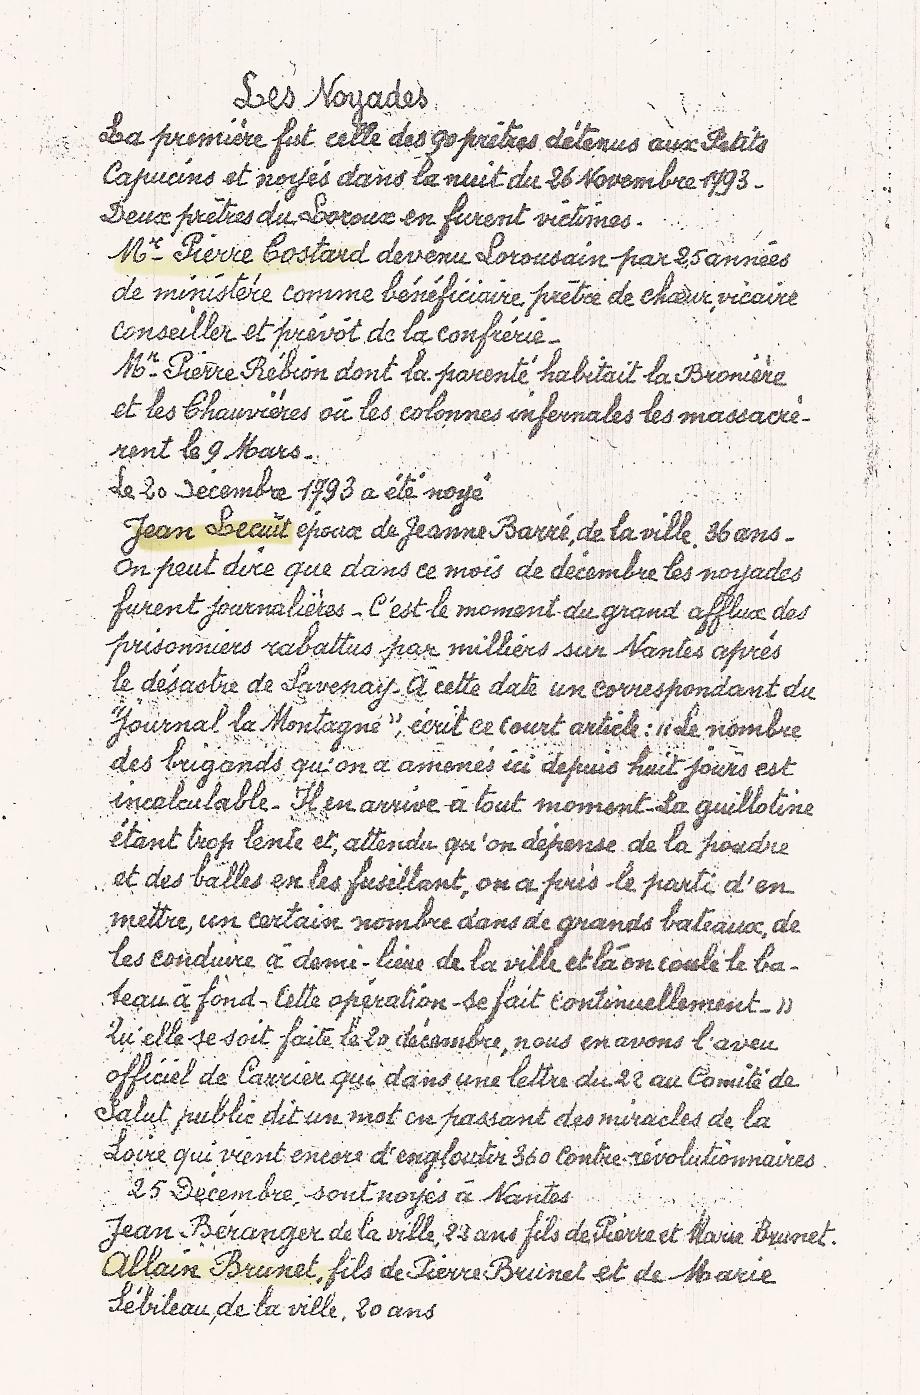 Les Noyades
La première fut celle des 90 prêtres détenus aux Petits
Capucins et noyés dans la nuit du 26 Novembre 1793-
Deux prêtres du Loroux en furent victimes.
Mr. Pierre Costard devenu Lorousain par 25 années
de ministère comme bénéficiaire, prêtre de chœur, vicaire
conseiller et prévôt de la confrérie-
Mr. Pierre Rébion dont la parenté habitait la Bronière
et les Chauvières où les colonnes infernales les massacrè-
rent le 9 Mars-
Le 20 Décembre 1793 a été noyé
Jean Lecuit époux de Jeanne Barré, de la ville, 36 ans-
On peut dire que dans ce mois de décembre les noyades
furent journalières- C'est le moment du grand afflux des
prisonniers rabattus par milliers sur Nantes après
le désastre de Savenay- A cette date un correspondant du
"Journal la Montagne", écrit ce court article: "Le nombre
des brigands qu'on a amenés ici depuis huit jours est
incalculable- Il en arrive à tout moment- La guillotine
étant trop lente et, attendu qu'on dépense de la poudre
et des balles en les fusillant, on a pris le parti d'en
mettre, un certain nombre dans de grands bateaux, de
les conduire à demi-lieue de la ville et là on coule le ba-
teau à fond- Cette opération se fait continuellement-"
Qu'elle se soit faite le 20 décembre, nous en avons l'aveu
officiel de Carrier qui dans une lettre du 22 au Comité de
Salut public dit un mot en passant des miracles de la
Loire qui vient encore d'engloutir 360 Contre-révolutionnaires
25 Décembre, sont noyés à Nantes
Jean Béranger de la ville, 22 ans fils de Pierre et Marie Brunet.
Allain Brunet, fils de Pierre Brunet et de Marie
Lébileau, de la ville, 20 ans